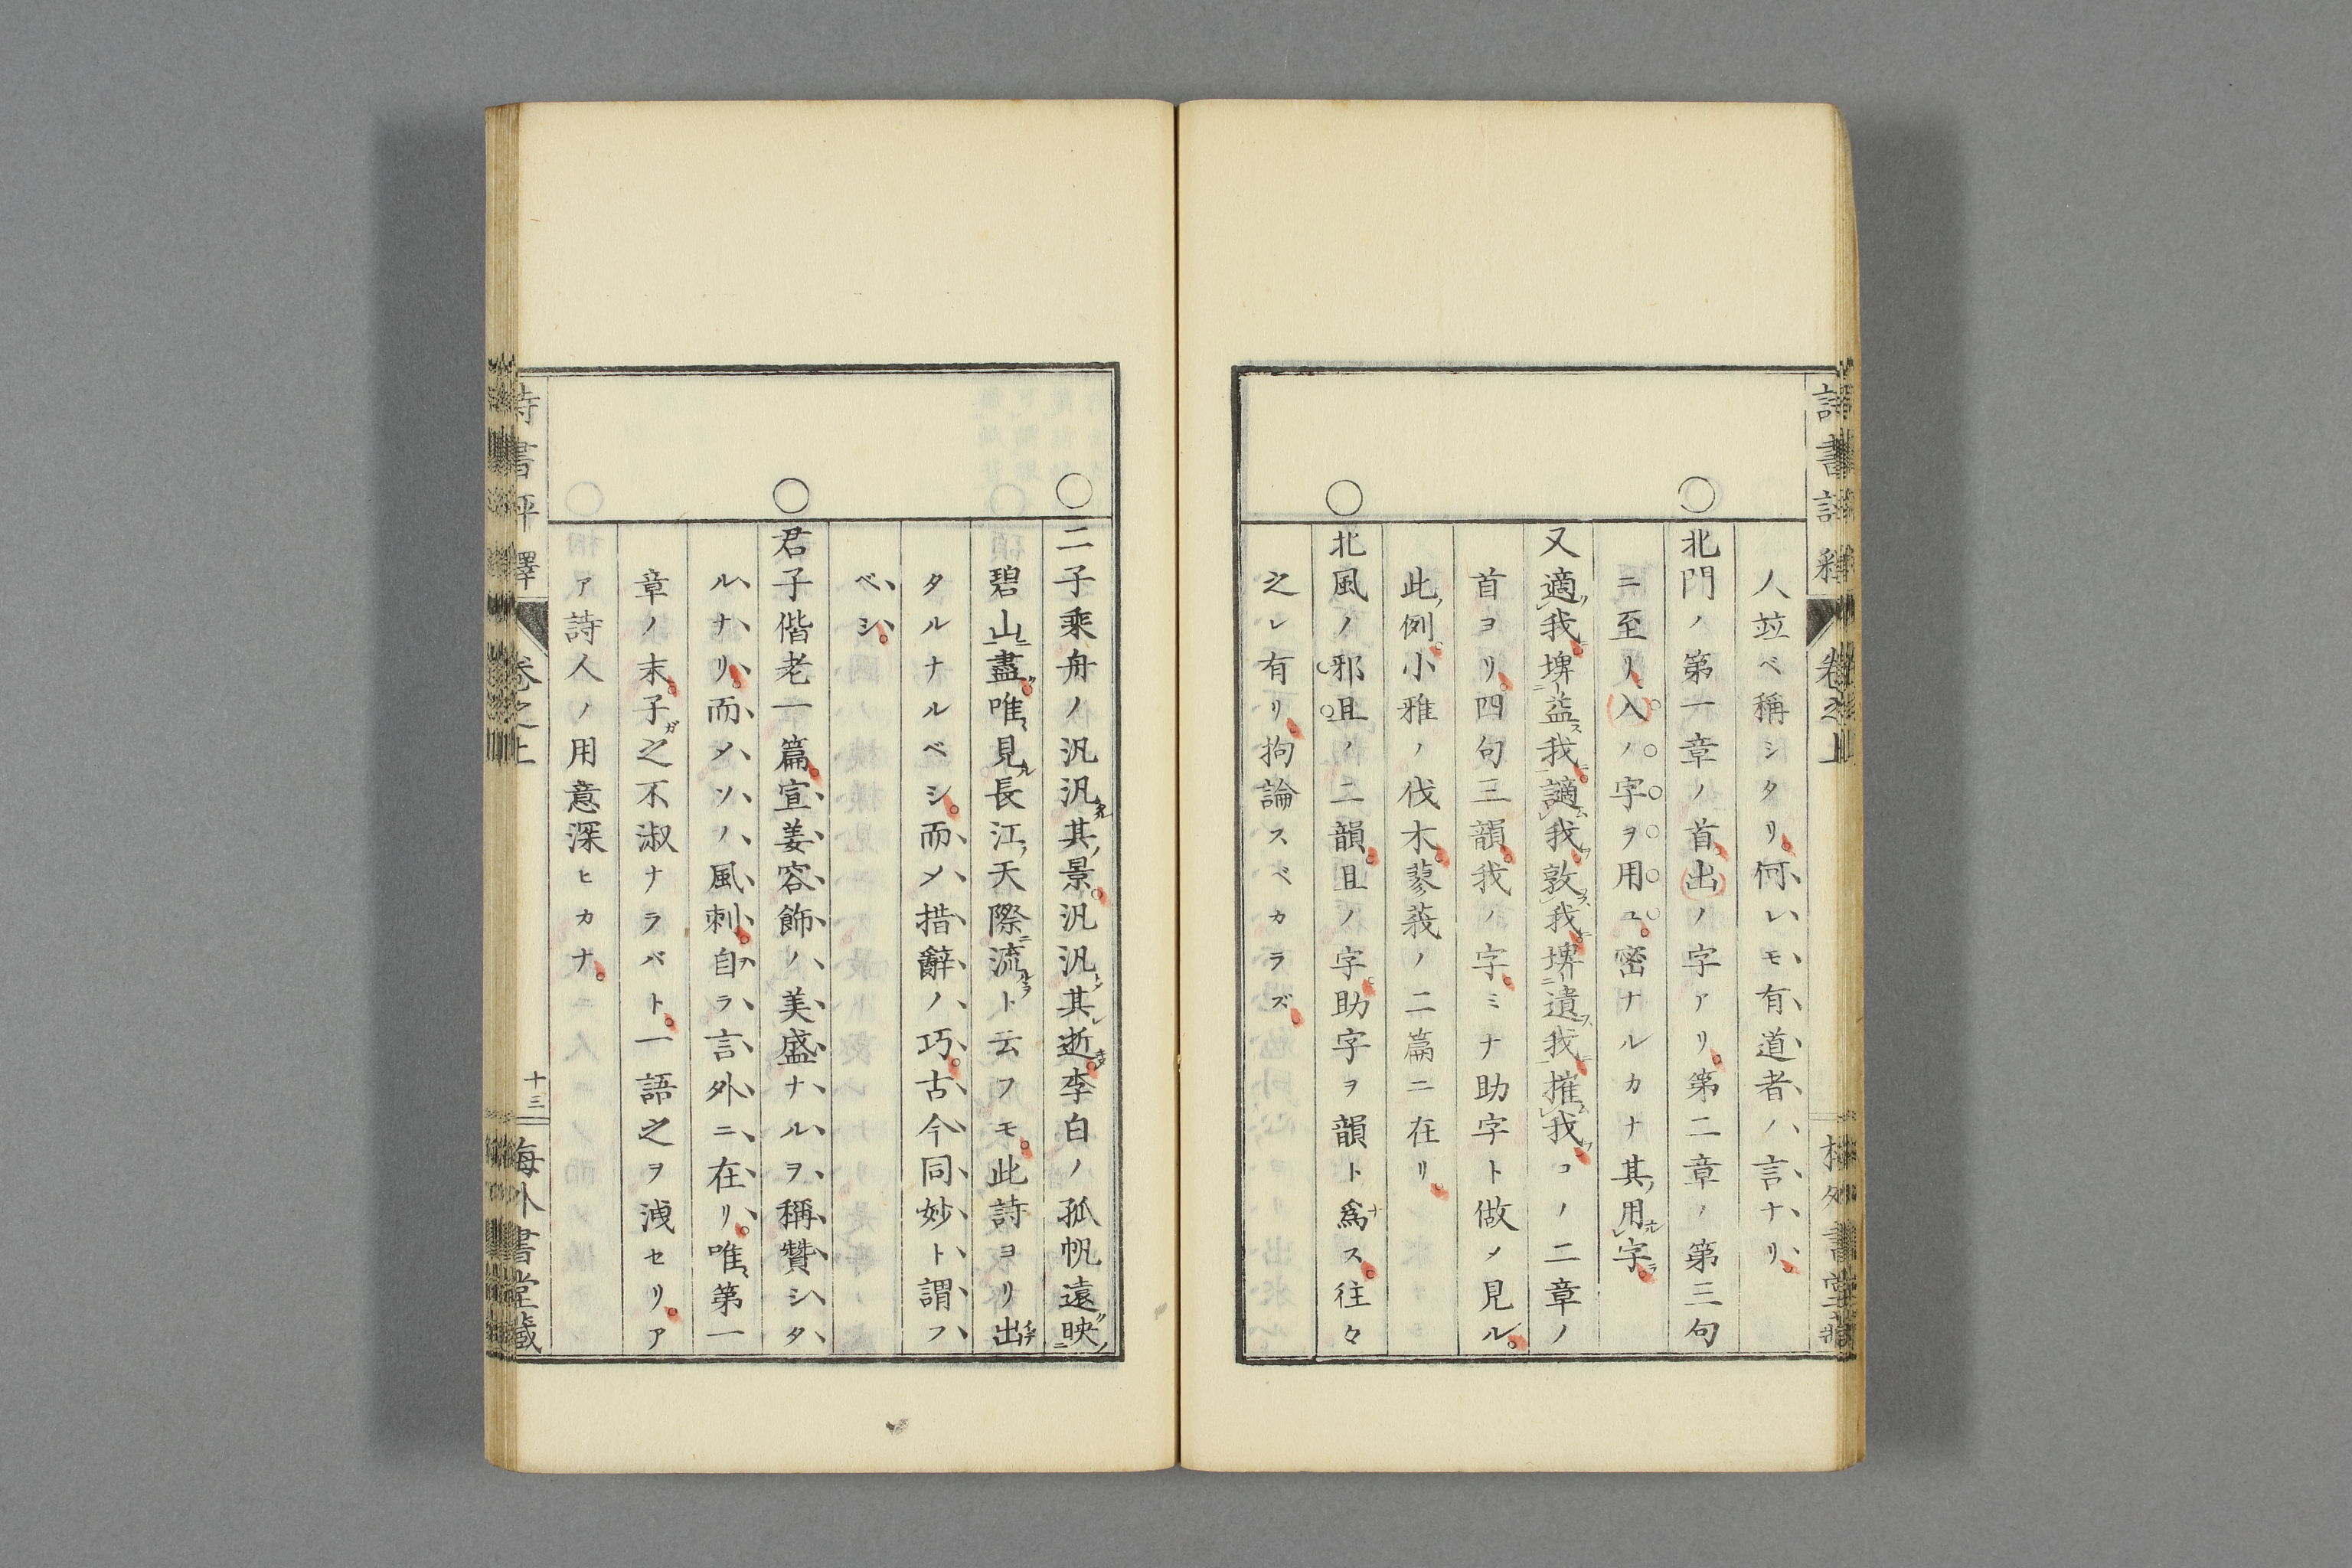 詩書評釋 卷之上
人竝ベ稱シタリ。何レモ有道者ノ言ナリ。
○北門ノ第一章ノ首。出ノ字アリ。第二章ノ第三句
ニ至リ。入ノ字ヲ用ユ。密ナルカナ其用字。
又適我埤益我讁我敦我埤遺我摧我コノ二章ノ
首ヨリ。四句三韻。我ノ字。ミナ助字ト做メ見ル。
此例。小雅ノ伐木。蓼莪ノ二篇ニ在リ。
○北風ノ邪且ノ二韻。且ノ字。助字ヲ韻ト爲ス。往々
之レ有リ。拘論スベカラズ。
○二子乘舟ノ汎汎其景。汎汎其逝。李白ノ孤帆遠映
碧山盡。唯見長江天際流ト云フモ。此詩ヨリ出
タルナルベシ。而メ措辭ノ巧。古今同妙ト謂フ
ベシ。
○君子偕老一篇。宣姜容飾ノ美盛ナルヲ稱贊シタ
ルナリ。而メソノ風刺。自ラ言外ニ在リ。唯第一
章ノ末。子之不淑ナラバト。一語之ヲ洩セリ。ア
ア詩人ノ用意深ヒカナ。
詩書評釋 卷之上 十三 海外書堂藏